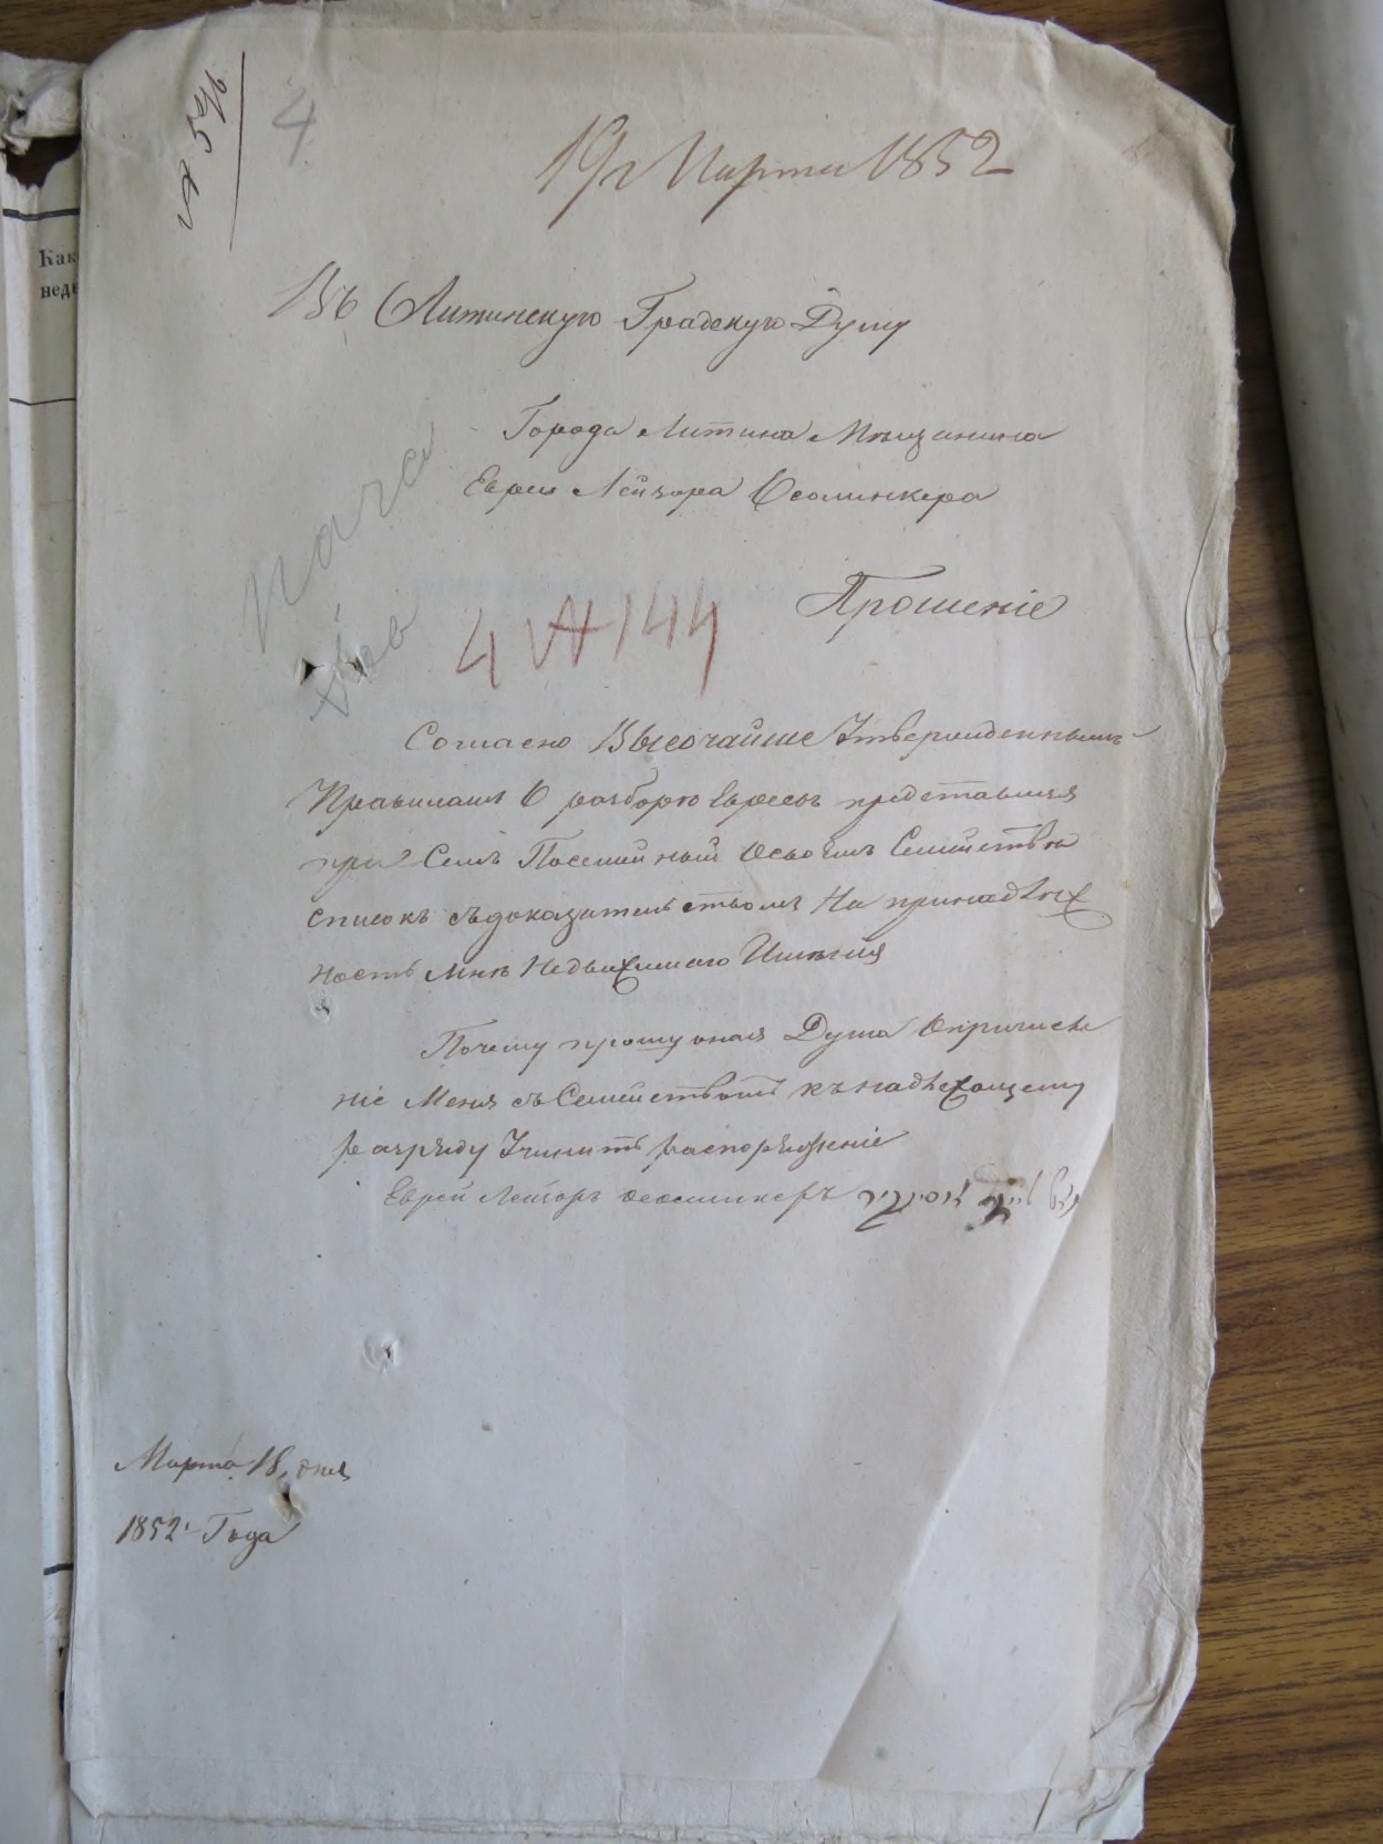 4
19го Марта 1852
Въ Литинскую Градскую Думу
Города Литина Мѣщанина
Еврея Лейзора Осолинкера
Прошеніе
4 № 144
Согласно Высочайше Утвержденнымъ
Правиламъ О разборѣ Евреевъ представляя
при Семъ Посемейный Освоемъ Семействѣ
списокъ съдоказательствомъ На принадлеж
ность Мнѣ Недвижимаго Имѣнія
Почему прошу оная Дума Опричисле
ніе Меня съСемействомъ къ надлежащему
разряду Учинить распоряженіе
Еврей Лейзоръ
Марта 18 дня
1852 Года
Как
неде